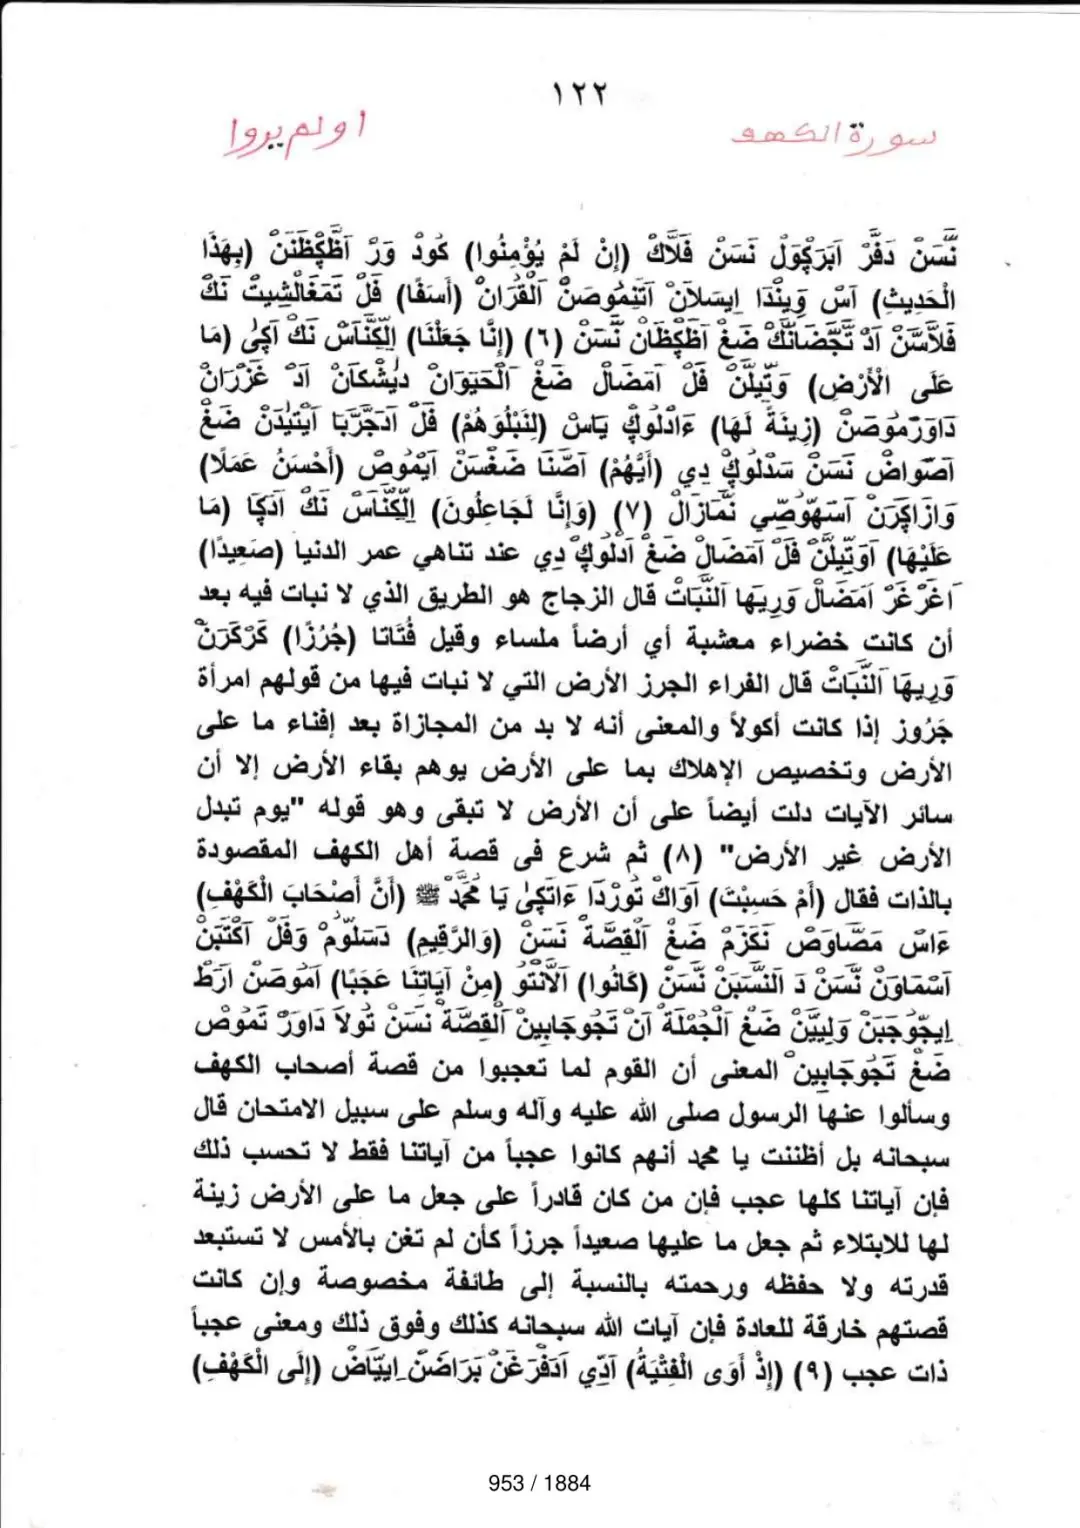 ١٢٢
سورة الكهف
اولم يروا
نَّسَنْ دَفَّرْ اَبَرَكَوَلْ نَسَنْ فَلَاكْ (إِنْ لَمْ يُؤْمِنُوا) كُودْ وَرَّ اَظَّكِظَنَنْ (بِهَذَا
الْحَدِيثِ) اَسْ وَيِنْدَا اِيسَلَانْ اَتَنِمُوصَنْ اَلْقُرَانْ (أَسَفًا) فَلْ تَمَغَالْشِيتْ نَكْ
فَلَاسَّنْ اَدْ تَّجَّضَانَّكْ ضَغْ اَظَّكِظَانْ نَّسَنْ (٦) (إِنَّا جَعَلْنَا) اِلِكَّنَّاسْ نَكْ اَكَىٰ (مَا
عَلَى الْأَرْضِ) وَتِّيلَنْ فَلْ اَمَضَالْ ضَغْ اَلْحَيَوَانْ دِيشْكَانْ اَدْ غَزْرَانْ
دَاوَرْمُوصَنْ (زِينَةً لَهَا) ءَادْلُوكْ يَاسْ (لِنَبْلُوَهُمْ) فَلْ اَدَجَّرَّبَا اَيْتِيْدَنْ ضَغْ
اَصْوَاضْ نَسَنْ سَدْلُوكْ دِي (أَيُّهُمْ) اَصَّنَا ضَغْسَنْ اَيْمُوصْ (أَحْسَنُ عَمَلًا)
وَازَاكِرَنْ اَسْهُوصِي نَّمَازَالْ (٧) (وَإِنَّا لَجَاعِلُونَ) اِلِكَّنَّاسْ نَكْ اَدَكَا (مَا
عَلَيْهَا) اَوَتِّيلَنْ فَلْ اَمَضَالْ ضَغْ اَدْلُوكْ دِي عند تناهي عمر الدنيا (صَعِيدًا)
اَغَرْغَرْ اَمَضَالْ وَرِيهَا اَلنَّبَاتْ قال الزجاج هو الطريق الذي لا نبات فيه بعد
أن كانت خضراء معشبة أي أرضاً ملساء وقيل فُتَاتا (جُرُزًا) كَرْكَرَنْ
وَرِيهَا اَلنَّبَاتْ قال الفراء الجرز الأرض التي لا نبات فيها من قولهم امرأة
جَرُوز إذا كانت أكولاً والمعنى أنه لا بد من المجازاة بعد إفناء ما على
الأرض وتخصيص الإهلاك بما على الأرض يوهم بقاء الأرض إلا أن
سائر الآيات دلت أيضاً على أن الأرض لا تبقى وهو قوله "يوم تبدل
الأرض غير الأرض" (٨) ثم شرع فى قصة أهل الكهف المقصودة
بالذات فقال (أَمْ حَسِبْتَ) اَوَاكْ تُورْدَا ءَاتَكِىٰ يَا مُحَمَّدْ ﷺ (أَنَّ أَصْحَابَ الْكَهْفِ)
ءَاسْ مَصَّاوَصْ نَكَزَمْ ضَغْ اَلْقِصَّةْ نَسَنْ (وَالرَّقِيمِ) دَسَلُّومْ وَفَلْ اَكْتَبَنْ
اَسْمَاوَنْ نَّسَنْ دَ اَلنَّسَبَنْ نَّسَنْ (كَانُوا) اَلَانْتُو (مِنْ آيَاتِنَا عَجَبًا) اَمُوصَنْ اَرَطْ
اِيجُوجَبَنْ وَلِيِيَّنْ ضَغْ اَلْجُمْلَةْ اَنْ تَجُوجَابِينْ اَلْقِصَّةْ نَسَنْ تُولَا دَاوَرْ تَمُوصْ
ضَغْ تَجُوجَابِينْ المعنى أن القوم لما تعجبوا من قصة أصحاب الكهف
وسألوا عنها الرسول صلى الله عليه وآله وسلم على سبيل الامتحان قال
سبحانه بل أظننت يا محمد أنهم كانوا عجباً من آياتنا فقط لا تحسب ذلك
فإن آياتنا كلها عجب فإن من كان قادراً على جعل ما على الأرض زينة
لها للابتلاء ثم جعل ما عليها صعيداً جرزاً كأن لم تغن بالأمس لا تستبعد
قدرته ولا حفظه ورحمته بالنسبة إلى طائفة مخصوصة وإن كانت
قصتهم خارقة للعادة فإن آيات الله سبحانه كذلك وفوق ذلك ومعنى عجباً
ذات عجب (٩) (إِذْ أَوَى الْفِتْيَةُ) اَدِّي اَدَفْرَغَنْ بَرَاضَنْ اِييَّاضْ (إِلَى الْكَهْفِ)
953 / 1884